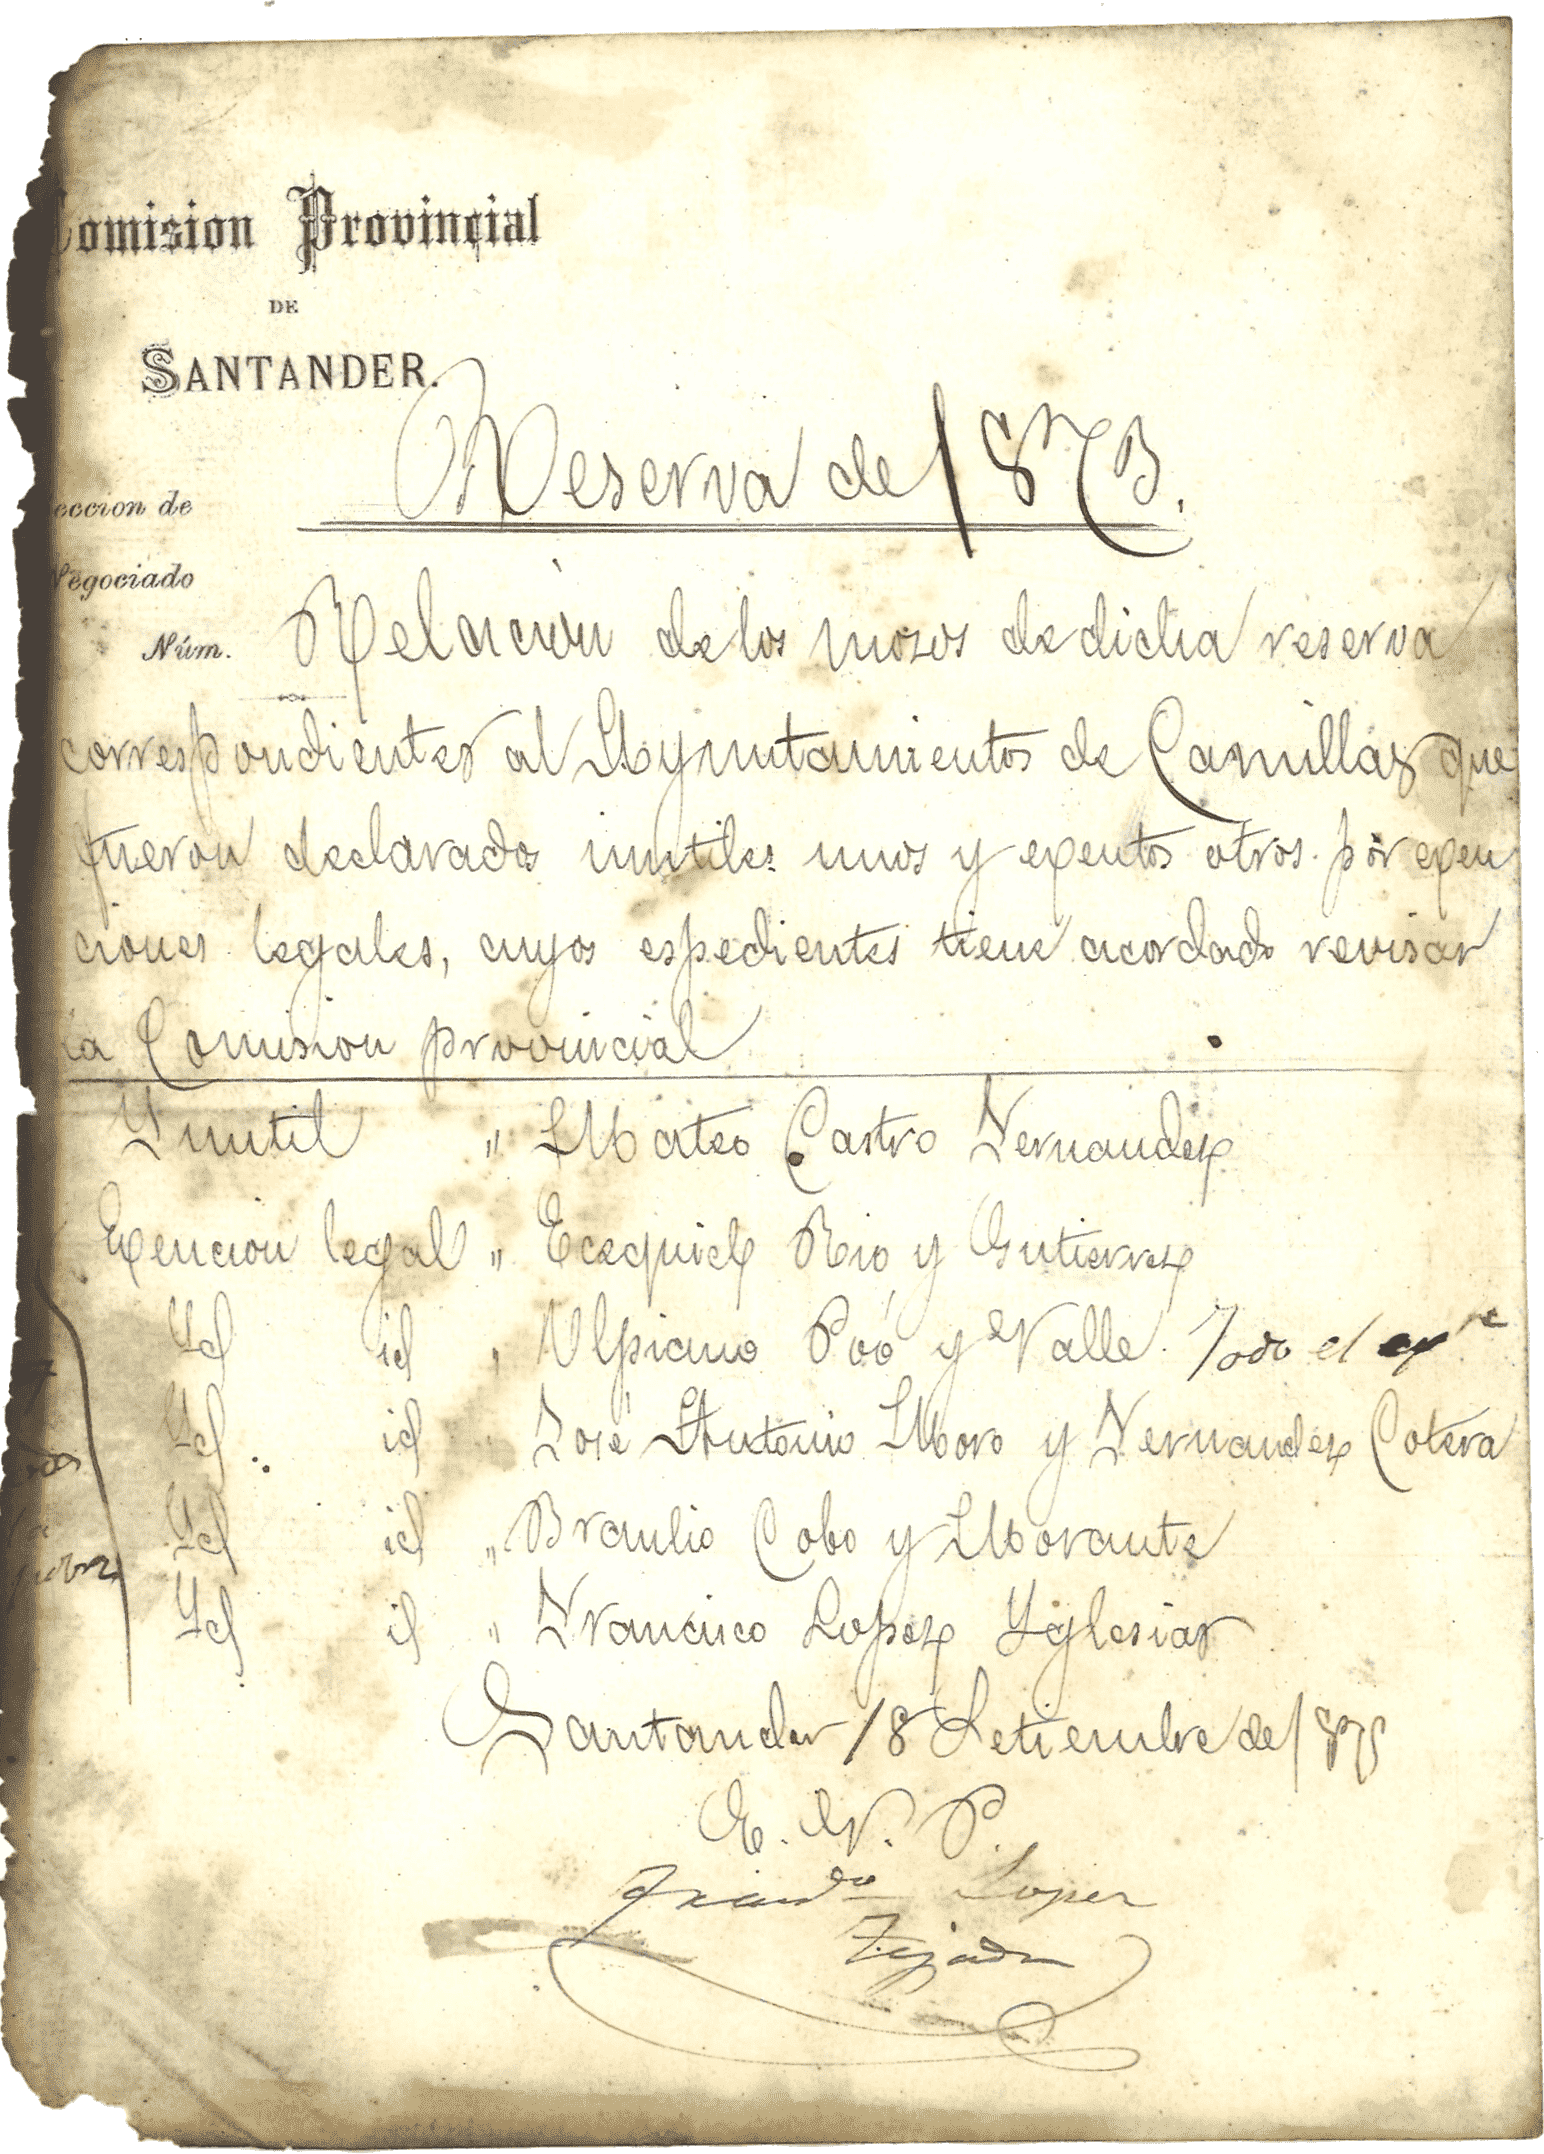 Comision Provincial
DE
SANTANDER.
Reserva de 1873.
eccion de
Negociado
Núm.
Relacion de los mozos de dicha reserva
correspondientes al Ayuntamientos de Camillas que
fueron declarados inutiles unos y exentos otros por exen
ciones legales, cuyos espedientes tiene acordado revisar
la Comision provincial
Ynutil " Mateo Castro Fernandez
Exencion legal " Ecequiel Rio y Gutierrez
Yd id " Ulpiano Poó y Valle. Todo el expte
Yd id " José Antonio Moro y Fernandez Cotera
Yd id " Braulio Cobo y Morante
Yd id " Francisco Lopez Yglesias
Santander 18 Setiembre de 1875
E. V. P.
Lopez
Tejada